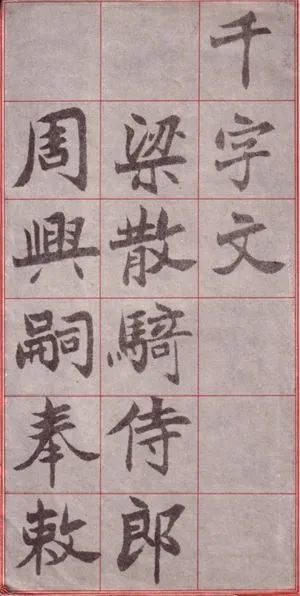 千字文
梁散騎侍郎
周興嗣奉敕